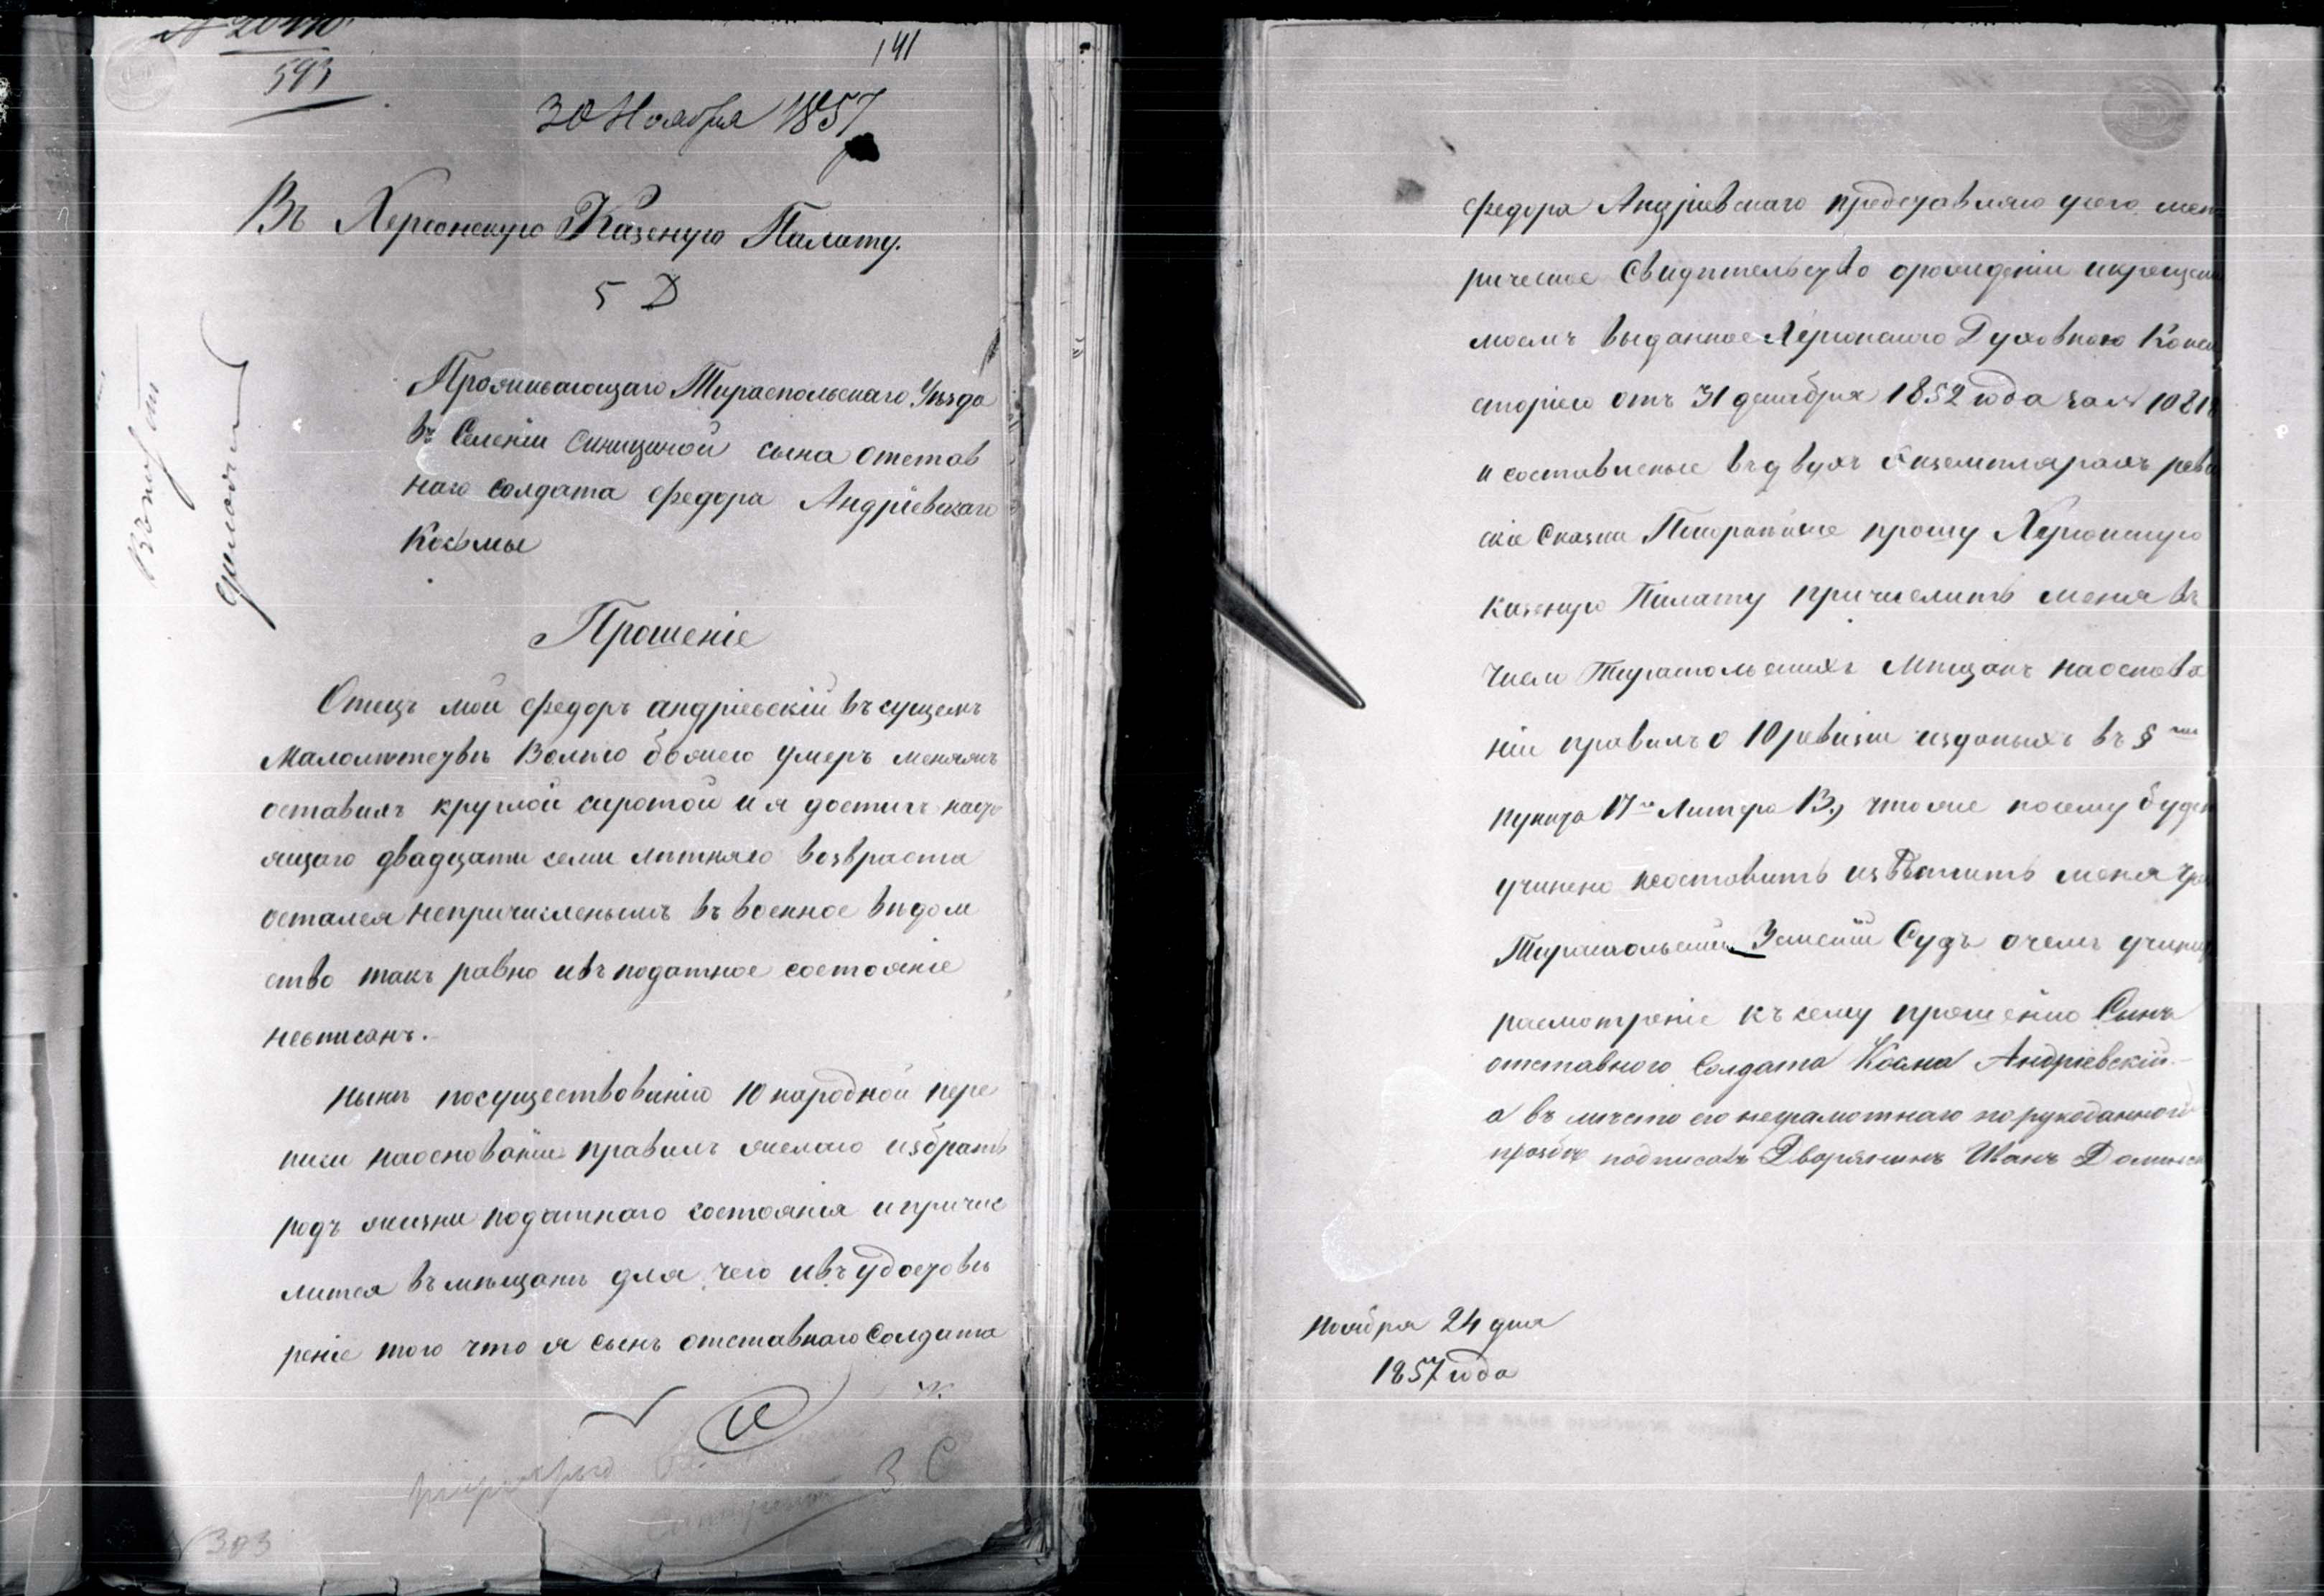 № 20440
593
141
30 Ноября 1857
Въ Херсонскую Казеную Палату.
5 Д
Проживающаго Тираспольскаго Уѣзда
въ Селеніи Синициной сына отстав
наго солдата Федора Андріевскаго
Козьмы
Прошеніе
Отецъ мой Федоръ андріевскій въ сущемъ
малолѣтствѣ Волею божіею умеръ меня
оставилъ круглой сиротой и я достигъ насто
ящаго двадцати семи лѣтняго возвраста
остался непричисленымъ въ военное вѣдом
ство такъ равно ивъ податное состояніе
невписанъ.
Нынѣ посуществованію 10 народной пере
писи наоснованіи правилъ желаю избрать
родъ жизни податнаго состоянія ипричис
лится въ мѣщане для чего ивъ удостовѣ
реніе того что я сынъ отставнаго Солдата
3 С
303
Федора Андріевскаго представляю мет
рическое Свидѣтельство орожденіи икрещен
моемъ выданное Херсонскою Духовною Конси
сторіею отъ 31 декабря 1852 года за №
и составленые въ двухъ экземплярахъ реви
скіе Сказки Покорнѣйше прошу Херсонскую
казеную Палату причислить меня въ
число Тираспольскихъ Мѣщанъ наоснова
ніи правилъ о 10 ревизіи изданыхъ въ §
пункта 17 Литера В, чтоже посему буде
учинено неоставить извѣстить меня чре
Тираспольскій Земскій Судъ очемъ учинить
расмотреніе къ сему прошенію Сынъ
отставного Солдата Косма Андріевскій
а въ мѣсто его неграмотнаго порукоданной
прозбѣ подписалъ Дворянинъ Иванъ
ноября 24 дня
1857 года